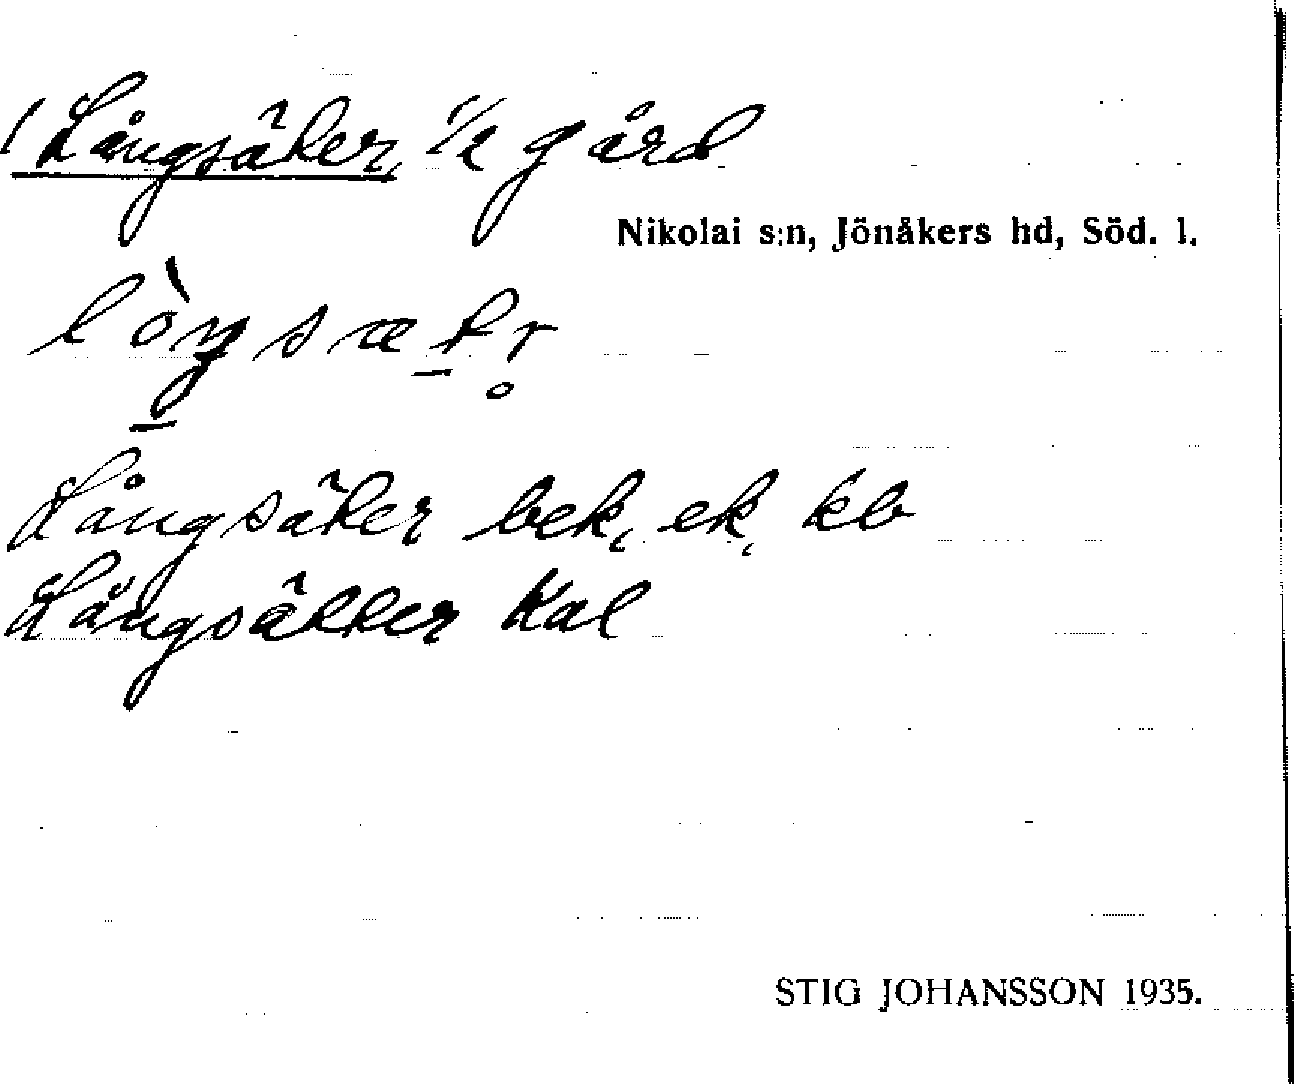 Långsäker, 1/2 gård
Nikolai s:n, Jönåkers hd, Söd. l.
lòŋsækr̥
Långsäker bek, ek, kb
Långsäkker Kal
STIG JOHANSSON 1935.